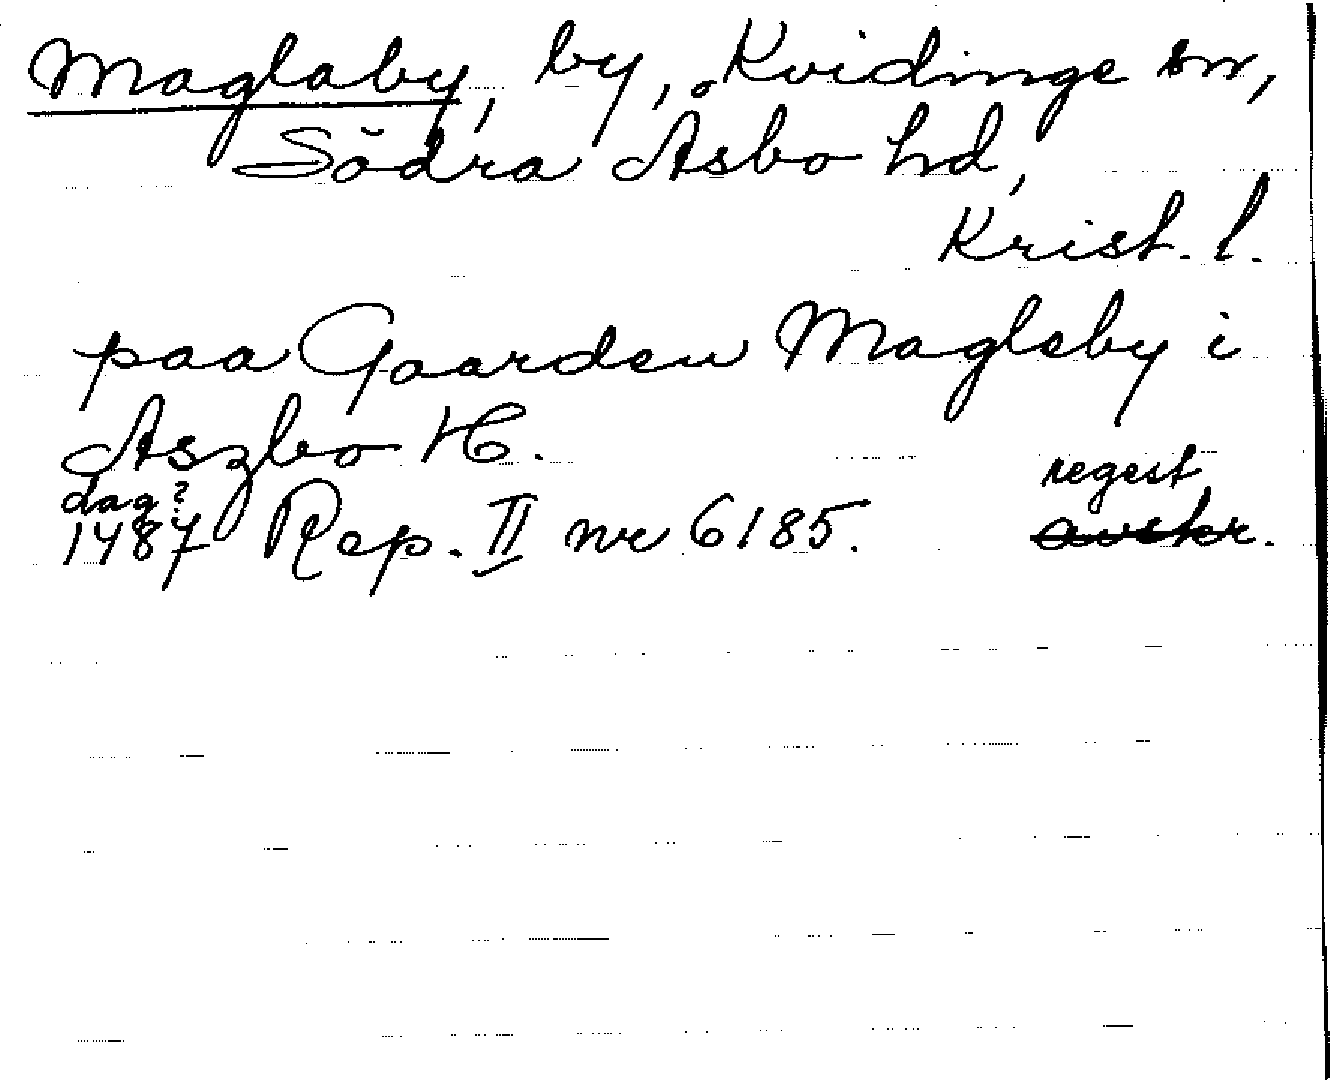 Maglaby, by, Kvidinge sn,
Södra Åsbo hd,
Krist. l.
paa Gaarden Magleby i
Aszbo H.
dag? regest
1487 Rep. II nr 6185. avskr.